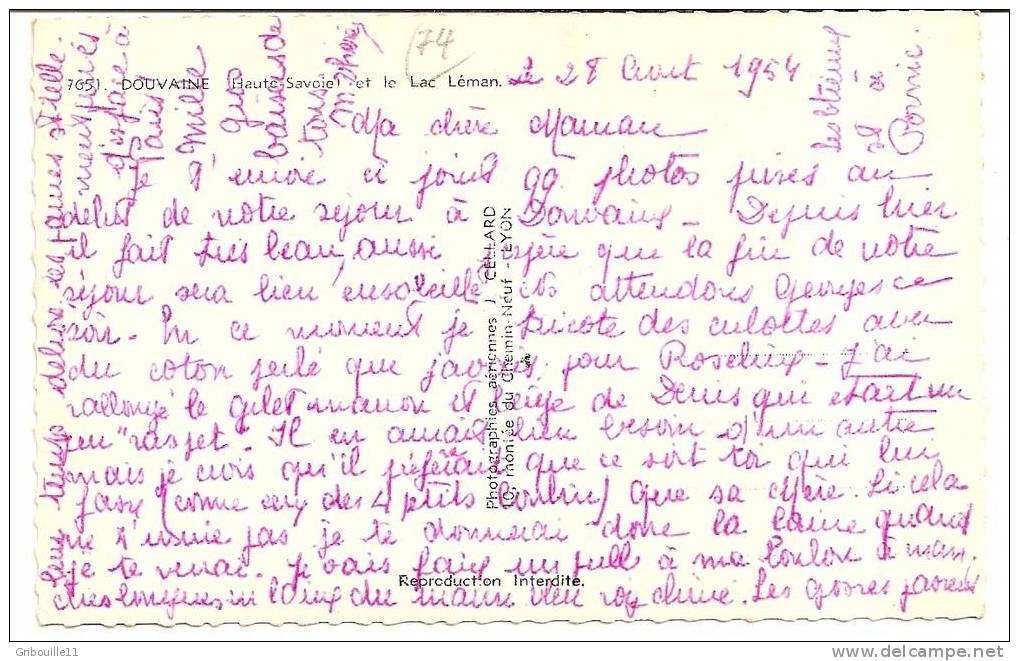 74
7651. DOUVAINE (Haute-Savoie) et le Lac Léman.
Le 28 Aout 1954
Ma chère Maman
Je t'envoie ci joint qq. photos prises au
début de notre séjour à Douvaine - Depuis hier
il fait très beau, aussi espère que la fin de notre
séjour sera bien ensoleillé. Ns attendons Georges ce
soir. En ce moment je tricote des culottes avec
du coton perlé que j'avais pour Roseline - J'ai
rallongé le gilet marron et beige de Denis qui était un
peu "raspet". Il en aurait bien besoin d'un autre
mais je crois qu'il préférait que ce soit toi qui lui
fasse (comme ceux des 4 ptits) que sa Mère. Si cela
ne t'ennuie pas je te donnerai donc la laine quand
je te verrai. Je vais faire un pull à ma à man
ches longues du bleu chiné. Les gosses
leur temps
Mille
gros
baisers de
tous
Les
st à
Pornic.
Photographies aériennes J. CELLARD
10, montée du Chemin-Neuf - LYON
Reproduction Interdite.
Gribouille11
delcampe.net